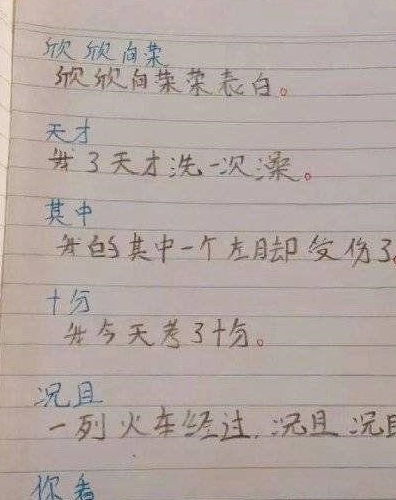 欣欣向荣
欣欣向荣荣表白。
天才
我3天才洗一次澡。
其中
我的其中一个左脚却受伤了
十分
我今天考了十分。
况且
一列火车经过,况且况且
你看